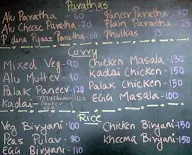 Parathas
Alu Paratha - 60 Paneer Paratha
Alu Cheese Paratha - 70 Plain Paratha
Pudina Paratha - 60 Phulkas 15
Curry
Mixed Veg - 90 Chicken Masala - 130
Alu Mutter - 70 Kadai Chicken - 150
Palak Paneer - 120 Palak Chicken - 150
Kadai Egg Masala - 100
Rice
Veg Biryani - 100 Chicken Biryani - 150
Peas Pulav - 80 Kheema Biryani - 150
Egg Biryani - 110